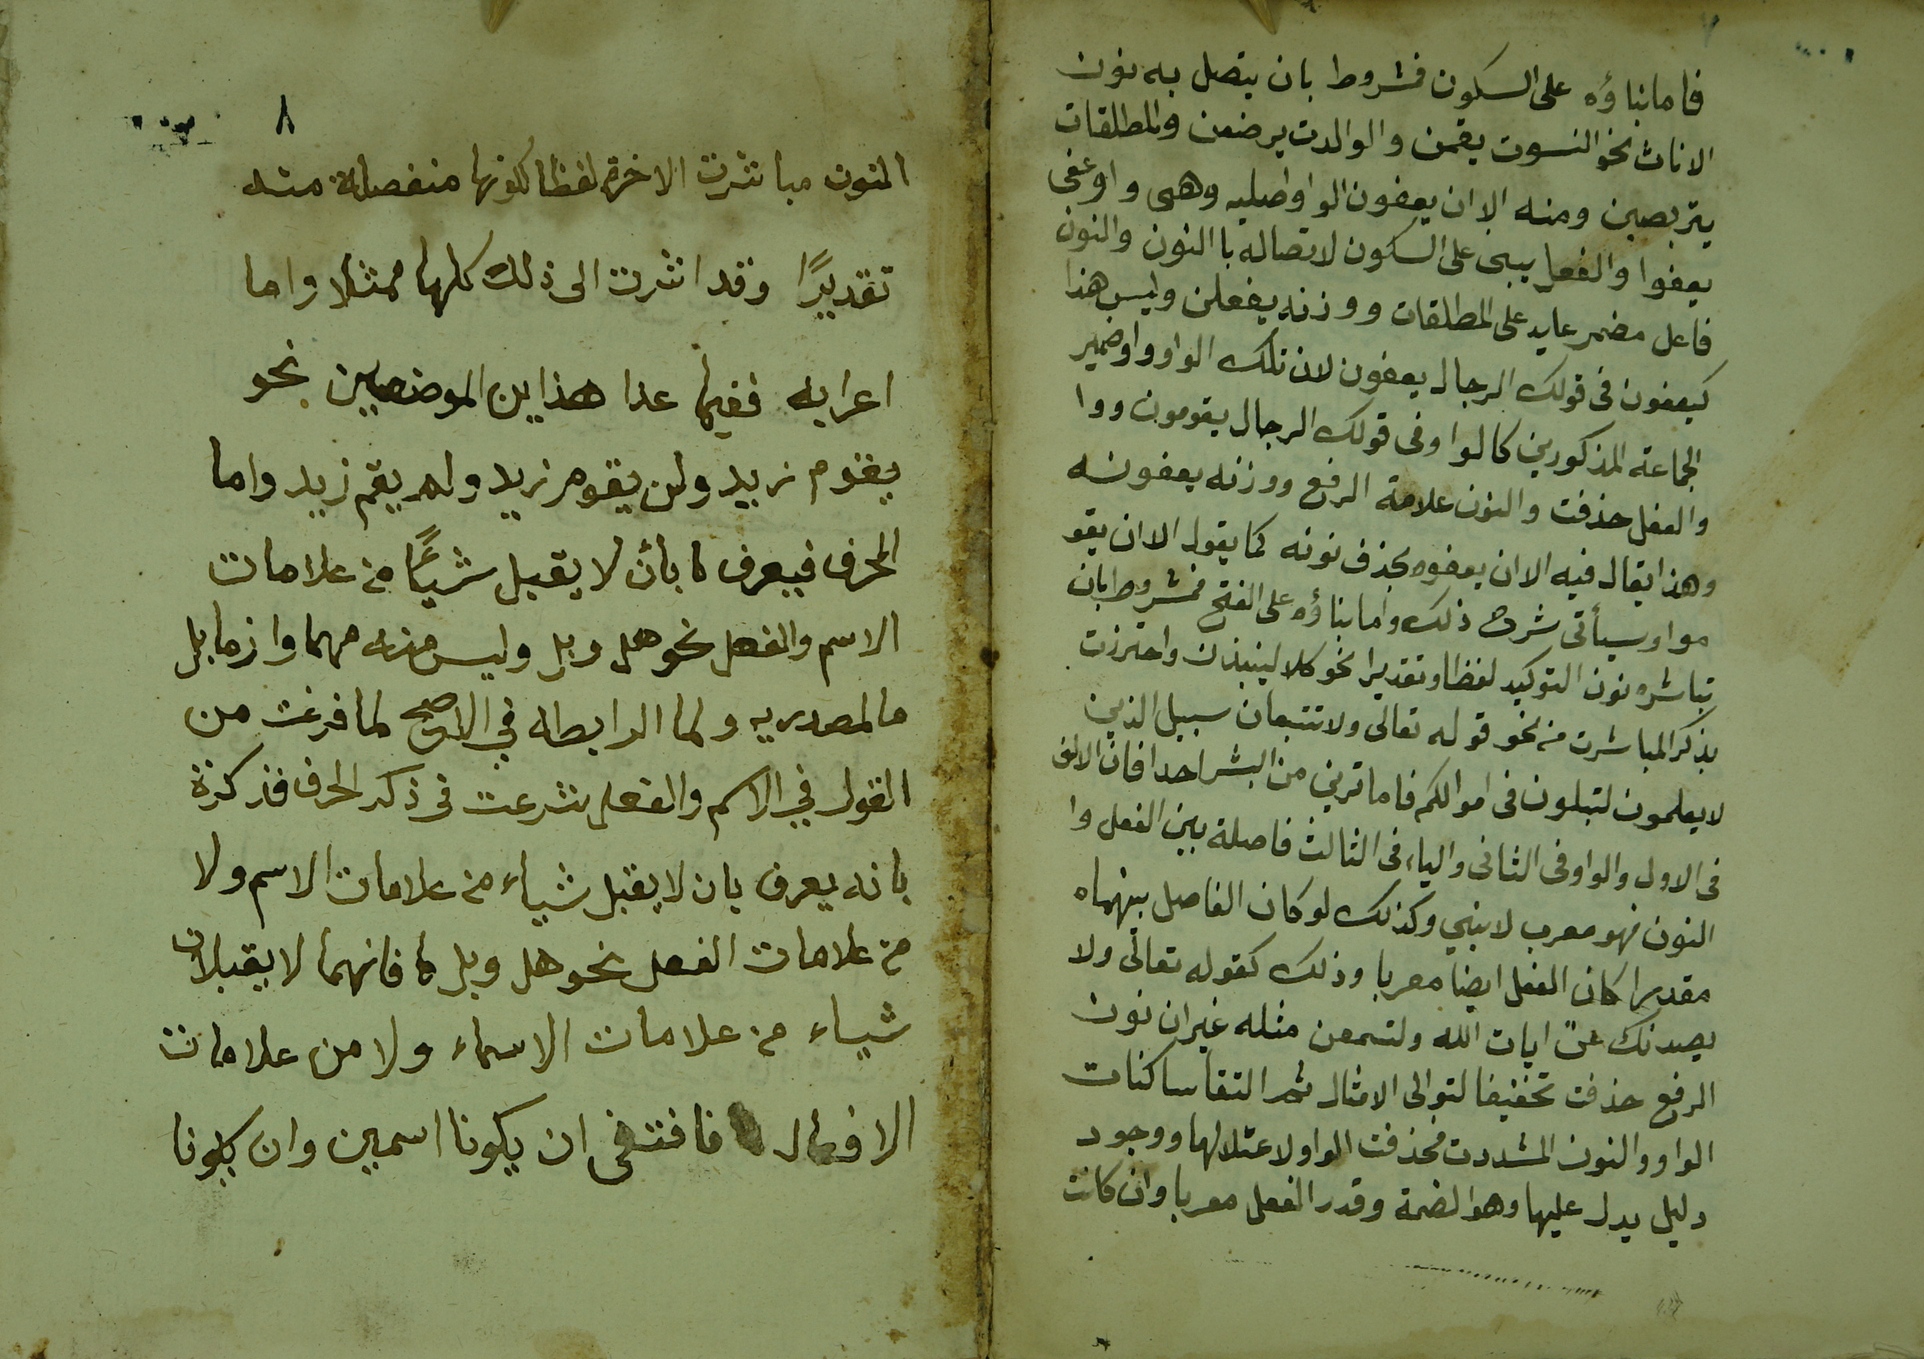 فاما بناؤه على السكون فشروط بان يتصل به نون
الاناث نحو النسوت يقمن والوالدت يرضعن والمطلقات
يتربصين ومنه الا ان يعفون الواو اصليه وهى واو عفى
يعفوا والفعل يبنى على السكون لاتصاله باالنون والنون
فاعل مضمر عايد على المطلقات ووزنه يفعلن وليس هذا
كيعفون فى قولك الرجال يعفون لان تلك الواو واو ضمير
الجماعة المذكورين كالوا وفى قولك الرجال يقومون ووا
والفعل حذفت والنون علامة الرفع ووزنه يعفونه
وهذا يقال فيه الا ان يعفوه بحذف نونه كما يقول الا ان يقو
موا وسيأتى شرح ذلك واما بناؤه على الفتح فمشروط بان
تباشره نون التوكيد لفظا وتقديرا نحو كلا لينبذن واحترزت
بذكر المباشرت من نحو قوله تعالى ولا تتبعان سبيل الذين
لا يعلمون لتبلون فى اموالكم فاما ترين من البشر احدا فان الالف
فى الاول والواو فى الثانى والياء فى الثالث فاصلة بين الفعل وا
النون فهو معرب لا بني وكذلك لو كان الفاصل بينهماه
مقديرا كان الفعل ايضا معربا وذلك كقوله تعالى ولا
يصدنك عن ايات الله ولتسمعن مثله غير ان نون
الرفع حذفت تخفيفا لتوالى الامثال ثم التقا ساكنات
الواو والنون المشددت فحذفت الواو لاعتلالها ووجود
دليل يدل عليها وهو الضمة وقدر الفعل معربا وان كانت
٨
النون مباشرت الاخرة لفظا لكونها منفصلة منه
تقديرًا وقد اشرت الى ذلك كلها ممثلا واما
اعرابه ففيما عدا هذاين الموضعين نحو
يقوم زيد ولن يقوم زيد ولم يقم زيد واما
الحرف فيعرف كا بأن لا يقبل شيئًا من علامات
الاسم والفعل نحو هل وبل وليس منه مهما واذما بل
ما المصدريه ولما الرابطه في الاصح لما فرغت من
القول في الاسم والفعل شرعت فى ذكر الحرف فذكرة
بانه يعرف بان لا يقبل شياء من علامات الاسم ولا
من علامات الفعل نحو هل وبل كا فانهما لا يقبلان
شياء من علامات الاسماء ولا من علامات
الافعال فافتفى ان يكونا اسمين وان يكونا